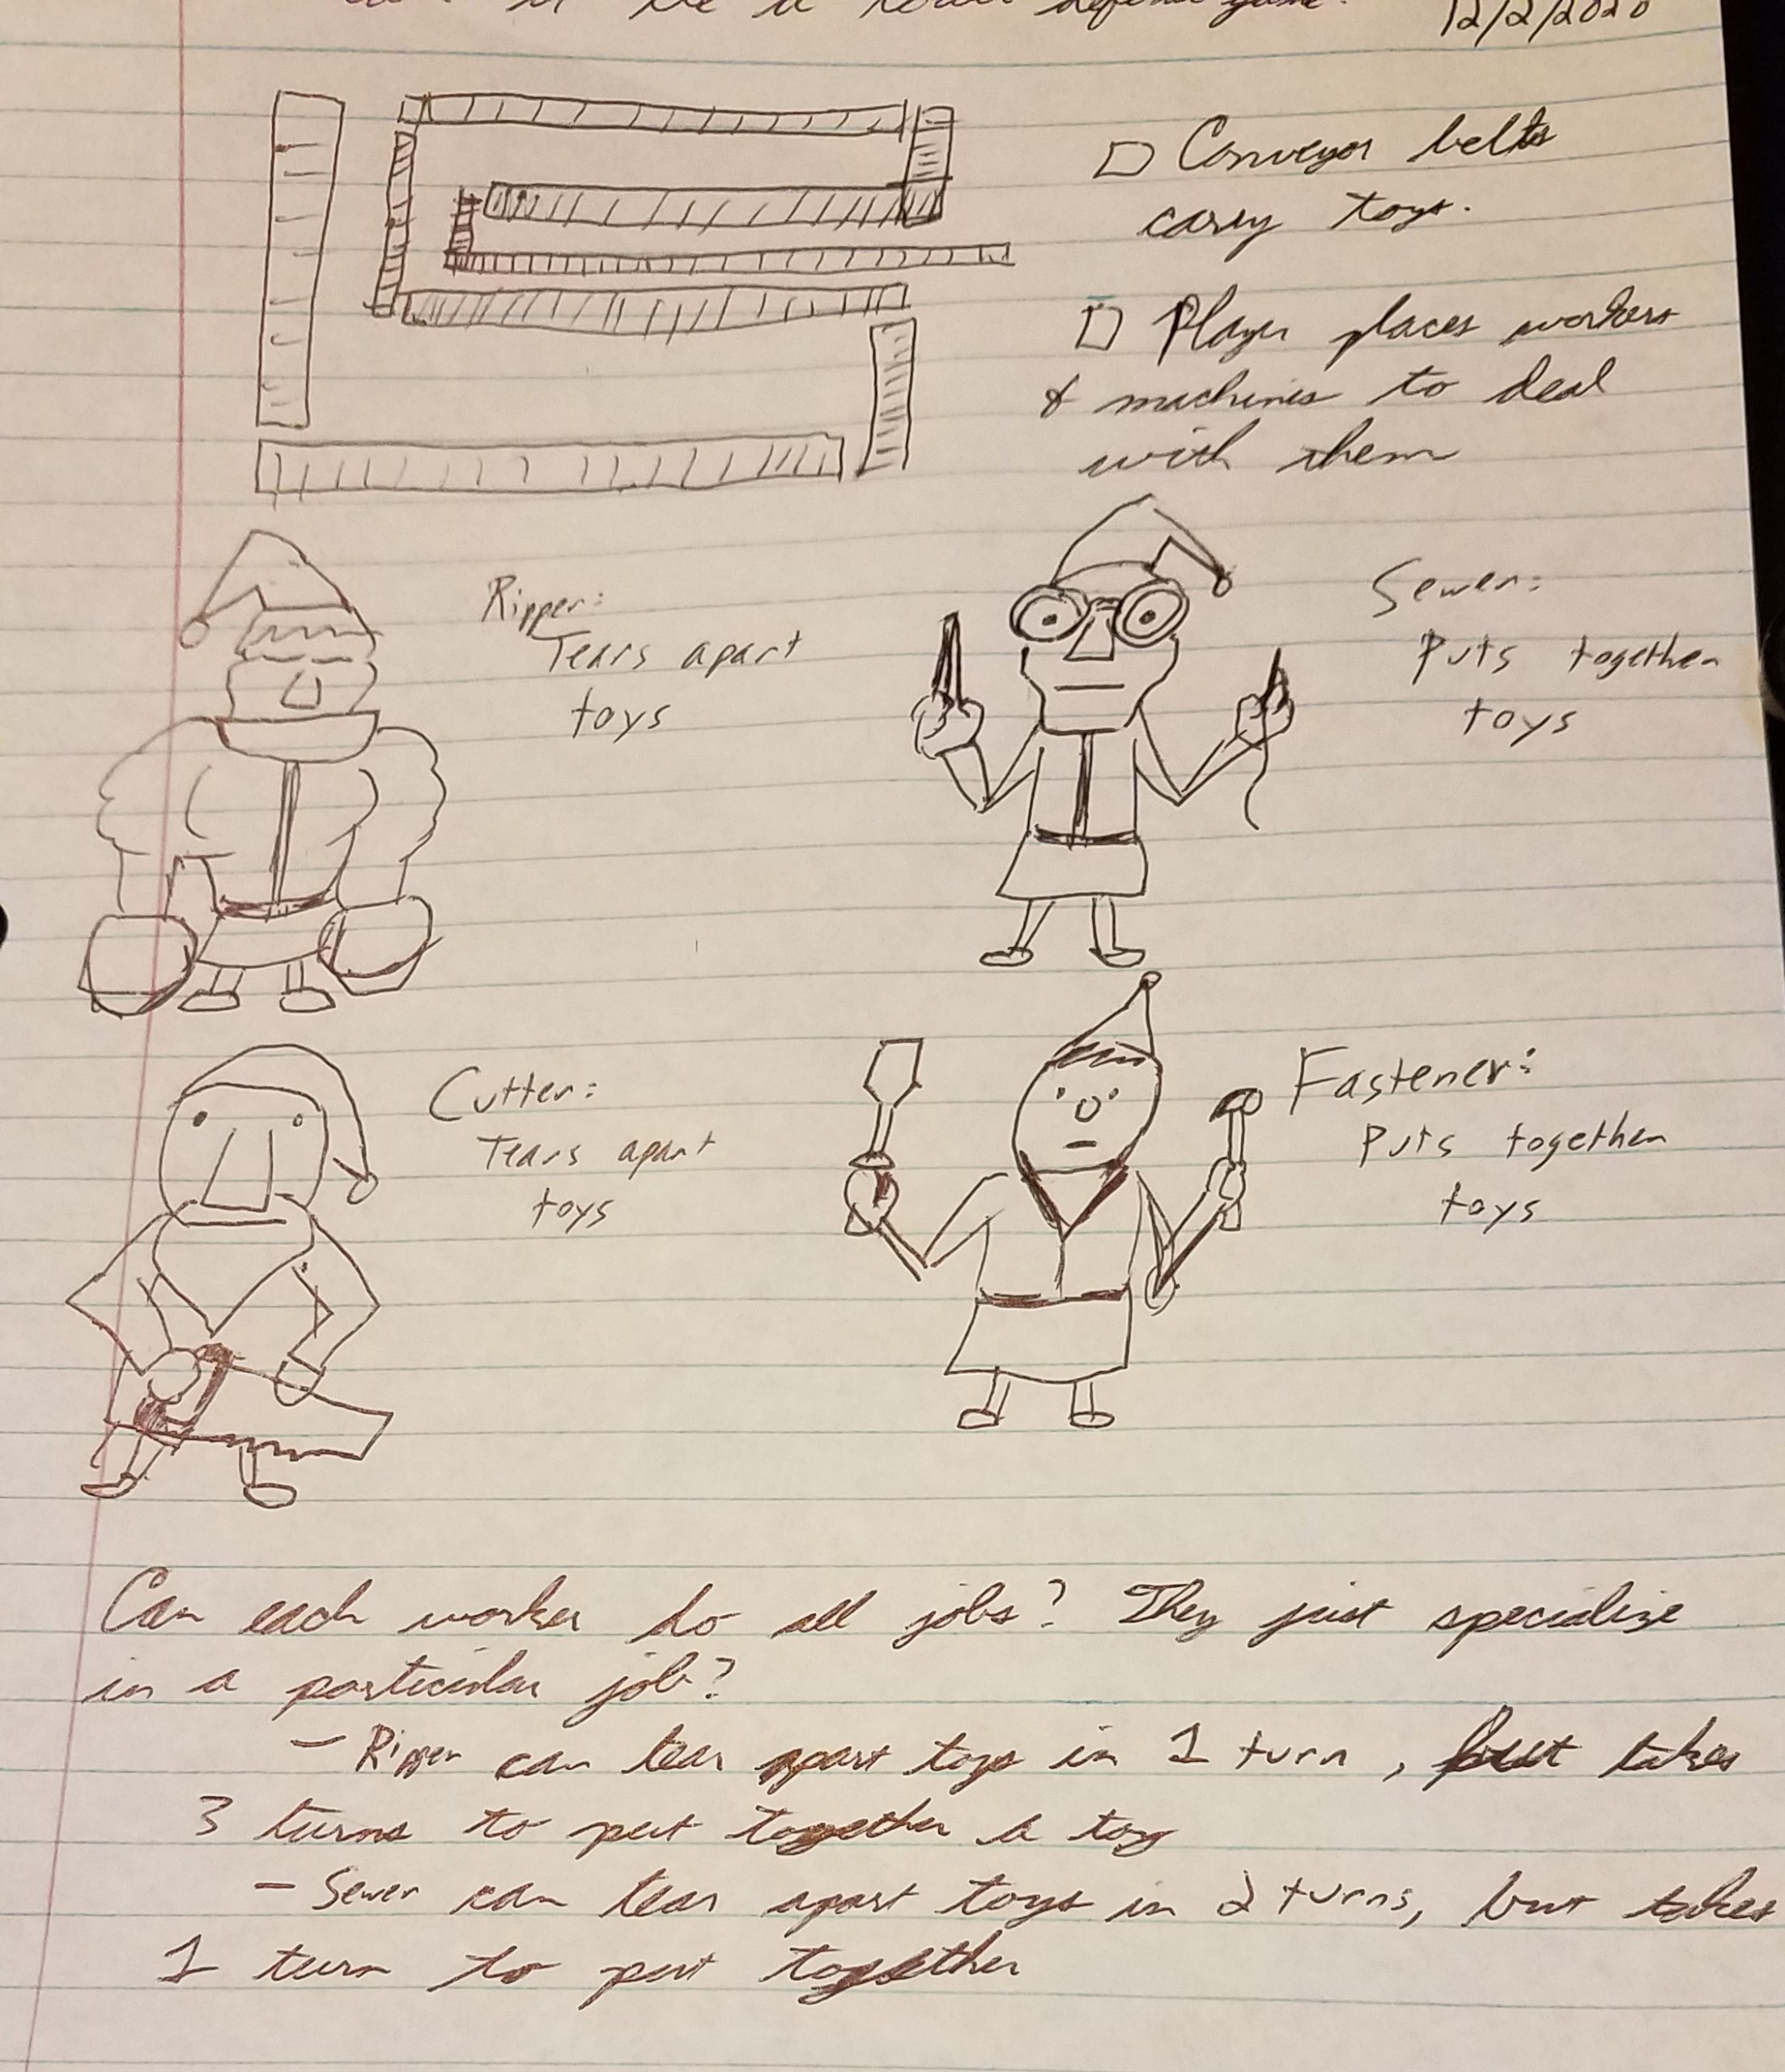 it be a tower defense game? 12/2/2020
Conveyor belts
carry toys.
Player places workers
& machines to deal
with them
Ripper:
Tears apart
toys
Sewer:
Puts together
toys
Cutter:
Tears apart
toys
Fastener:
Puts together
toys
Can each worker do all jobs? They just specialize
in a particular job?
- Ripper can tear apart toys in 1 turn, but takes
3 turns to put together a toy
- Sewer can tear apart toys in 2 turns, but takes
1 turn to put together